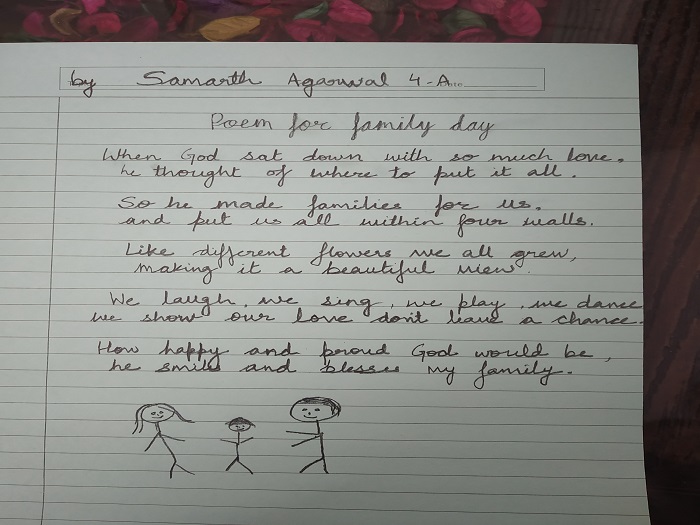 by Samarth Agarwal 4-A...
Poem for family day
When God sat down with so much love.
he thought of where to put it all.
So he made families for us.
and put us all within four walls.
Like different flowers we all grew,
making it a beautiful view.
We laugh, we sing, we play, we dance
we show our love don't leave a chance.
How happy and proud God would be,
he smile and blesses my family.